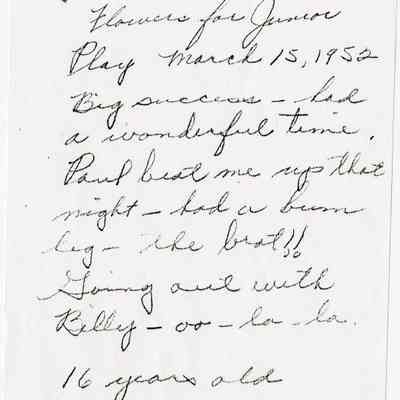 Flowers for Junior
Play March 15, 1952
Big success - had
a wonderful time.
Paul beat me up that
night - had a bum
leg - the brat!!
Going out with
Billy - oo - la - la.
16 years old